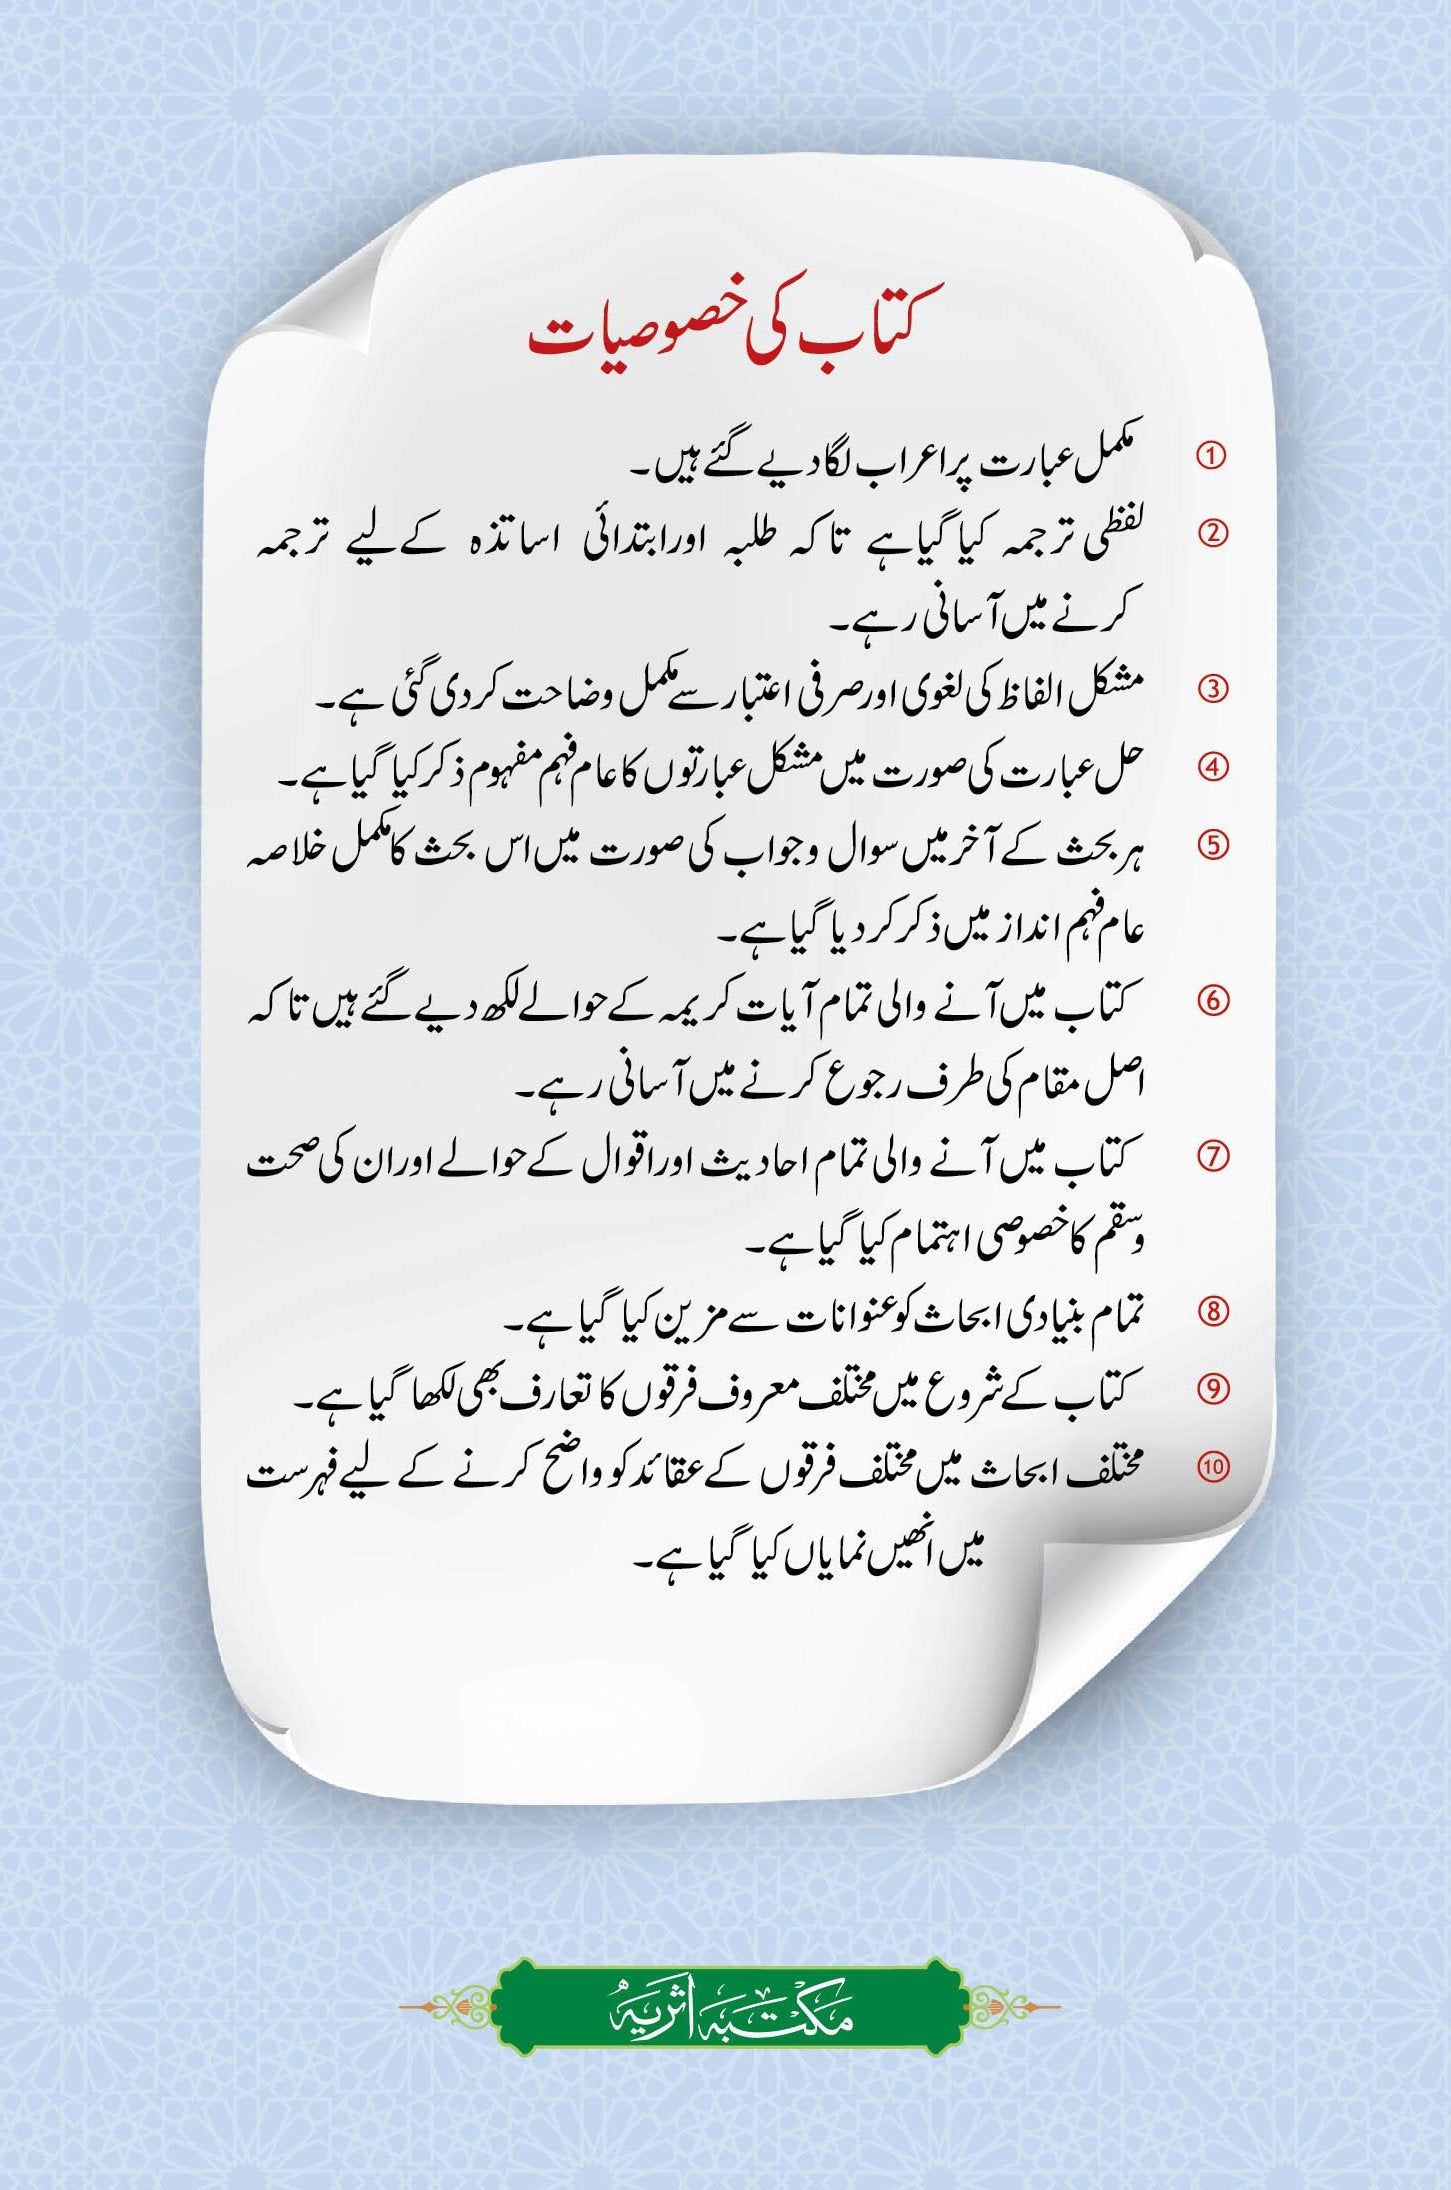 کتاب کی خصوصیات
① مکمل عبارت پر اعراب لگا دیے گئے ہیں۔
② لفظی ترجمہ کیا گیا ہے تاکہ طلبہ اور ابتدائی اساتذہ کے لیے ترجمہ
کرنے میں آسانی رہے۔
③ مشکل الفاظ کی لغوی اور صرفی اعتبار سے مکمل وضاحت کر دی گئی ہے۔
④ حل عبارت کی صورت میں مشکل عبارتوں کا عام فہم مفہوم ذکر کیا گیا ہے۔
⑤ ہر بحث کے آخر میں سوال و جواب کی صورت میں اس بحث کا مکمل خلاصہ
عام فہم انداز میں ذکر کر دیا گیا ہے۔
⑥ کتاب میں آنے والی تمام آیات کریمہ کے حوالے لکھ دیے گئے ہیں تاکہ
اصل مقام کی طرف رجوع کرنے میں آسانی رہے۔
⑦ کتاب میں آنے والی تمام احادیث اور اقوال کے حوالے اور ان کی صحت
و سقم کا خصوصی اہتمام کیا گیا ہے۔
⑧ تمام بنیادی ابحاث کو عنوانات سے مزین کیا گیا ہے۔
⑨ کتاب کے شروع میں مختلف معروف فرقوں کا تعارف بھی لکھا گیا ہے۔
⑩ مختلف ابحاث میں مختلف فرقوں کے عقائد کو واضح کرنے کے لیے فہرست
میں انھیں نمایاں کیا گیا ہے۔
مَکتَبَہ اَثَرِیَہُ